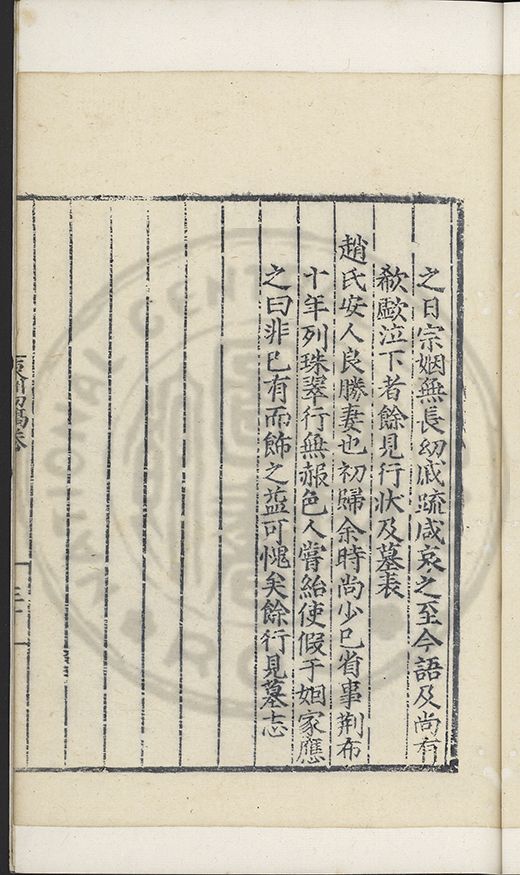 之日宗姻無長幼戚疏咸哀之至今語及尚有
欷歔泣下者餘見行狀及墓表
趙氏安人良勝妻也初歸余時尚少已省事荆布
十年列珠翠行無赧色人嘗紿使假于姻家應
之曰非己有而飾之益可愧矣餘行見墓志